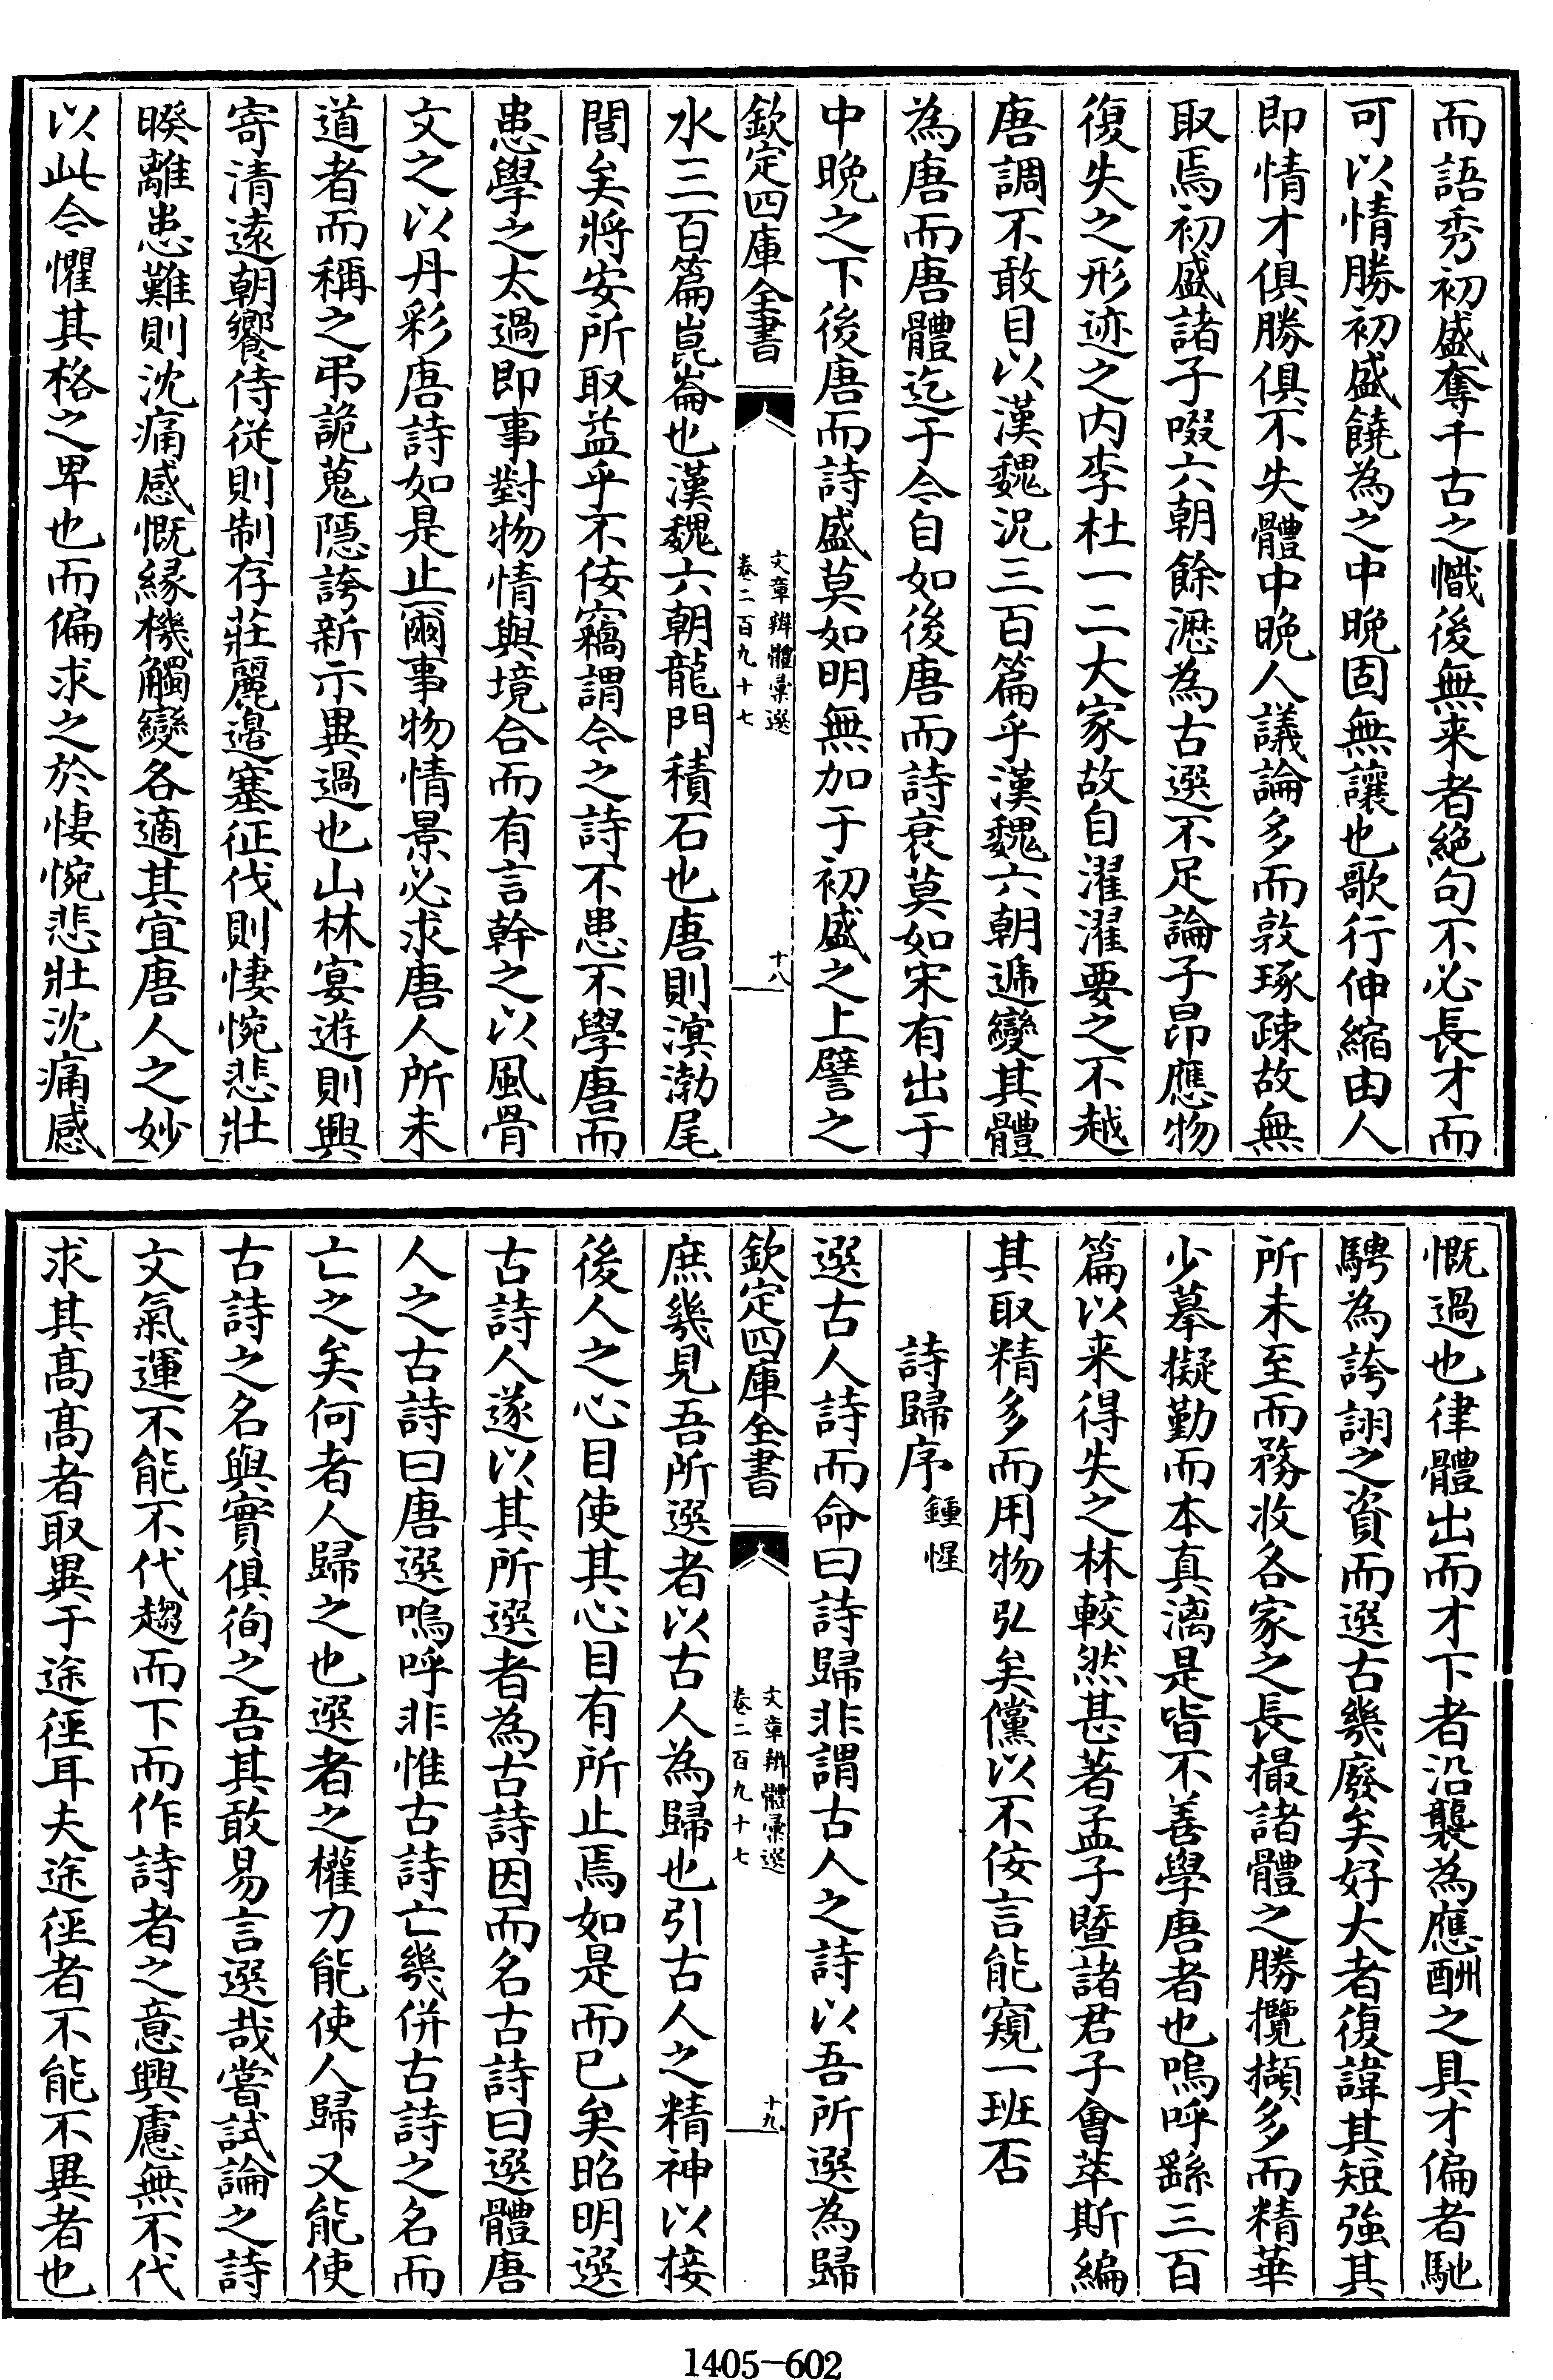 而語秀初盛奪千古之幟後無来者絶句不必長才而
可以情勝初盛饒為之中晚固無讓也歌行伸縮由人
即情才俱勝俱不失體中晚人議論多而敦琢疎故無
取焉初盛諸子啜六朝餘瀝為古選不足論子昂應物
復失之形迹之内李杜一二大家故自濯濯要之不越
唐調不敢目以漢魏況三百篇乎漢魏六朝遞變其體
為唐而唐體迄于今自如後唐而詩衰莫如宋有出于
中晚之下後唐而詩盛莫如明無加于初盛之上譬之
欽定四庫全書
文章辨體彙選
卷二百九十七
十八
水三百篇崑崙也漢魏六朝龍門積石也唐則溟渤尾
閭矣將安所取益乎不佞竊謂今之詩不患不學唐而
患學之太過即事對物情與境合而有言幹之以風骨
文之以丹彩唐詩如是止爾事物情景必求唐人所未
道者而稱之弔詭蒐隱誇新示異過也山林宴遊則興
寄清遠朝饗侍從則制存莊麗邊塞征伐則悽惋悲壯
暌離患難則沈痛感慨緣機觸變各適其宜唐人之妙
以此今懼其格之卑也而偏求之於悽惋悲壯沈痛感
慨過也律體出而才下者沿襲為應酬之具才偏者馳
騁為誇詡之資而選古幾廢矣好大者復諱其短強其
所未至而務收各家之長撮諸體之勝攬擷多而精華
少摹擬勤而本真漓是皆不善學唐者也嗚呼繇三百
篇以来得失之林較然甚著孟子暨諸君子會萃斯編
其取精多而用物弘矣儻以不佞言能窺一班否
詩歸序 鍾惺
選古人詩而命曰詩歸非謂古人之詩以吾所選為歸
欽定四庫全書
文章辨體彙選
卷二百九十七
十九
庶幾見吾所選者以古人為歸也引古人之精神以接
後人之心目使其心目有所止焉如是而已矣昭明選
古詩人遂以其所選者為古詩因而名古詩曰選體唐
人之古詩曰唐選嗚呼非惟古詩亡幾併古詩之名而
亡之矣何者人歸之也選者之權力能使人歸又能使
古詩之名與實俱徇之吾其敢易言選哉嘗試論之詩
文氣運不能不代趨而下而作詩者之意興慮無不代
求其髙髙者取異于途徑耳夫途徑者不能不異者也
1405—602